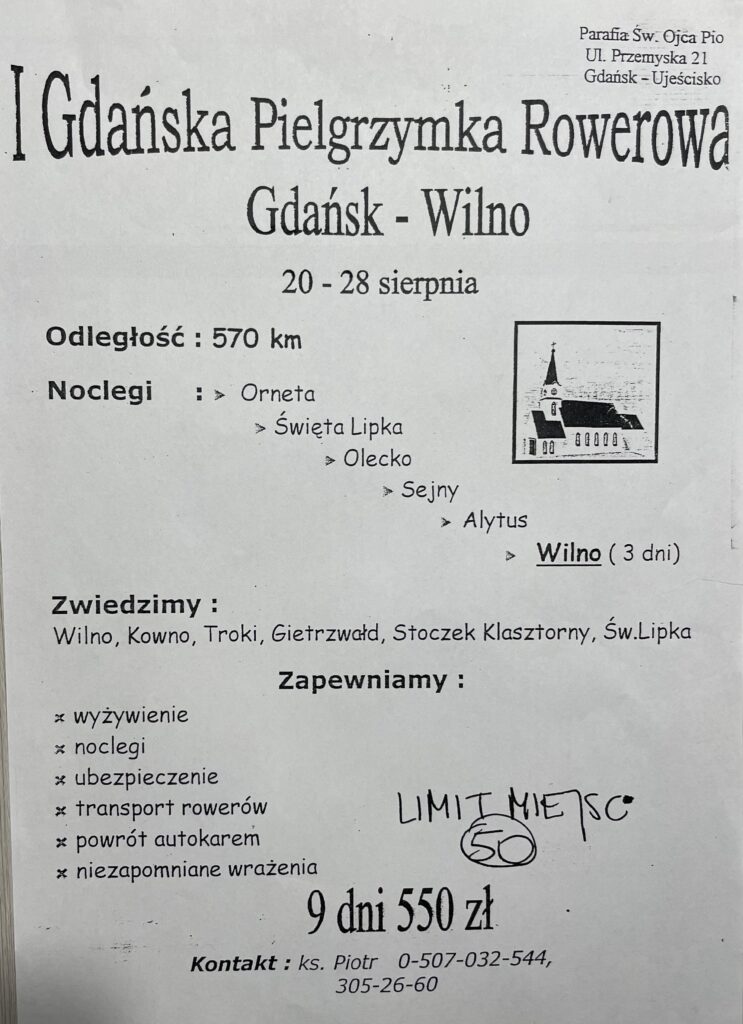 Parafia Św. Ojca Pio
Ul. Przemyska 21
Gdańsk – Ujeścisko
I Gdańska Pielgrzymka Rowerowa
Gdańsk - Wilno
20 - 28 sierpnia
Odległość : 570 km
Noclegi : ➢ Orneta
➢ Święta Lipka
➢ Olecko
➢ Sejny
➢ Alytus
➢ Wilno ( 3 dni)
Zwiedzimy :
Wilno, Kowno, Troki, Gietrzwałd, Stoczek Klasztorny, Św.Lipka
Zapewniamy :
× wyżywienie
× noclegi
× ubezpieczenie
× transport rowerów
× powrót autokarem
× niezapomniane wrażenia
LIMIT MIEJSC
50
9 dni 550 zł
Kontakt : ks. Piotr 0-507-032-544,
305-26-60